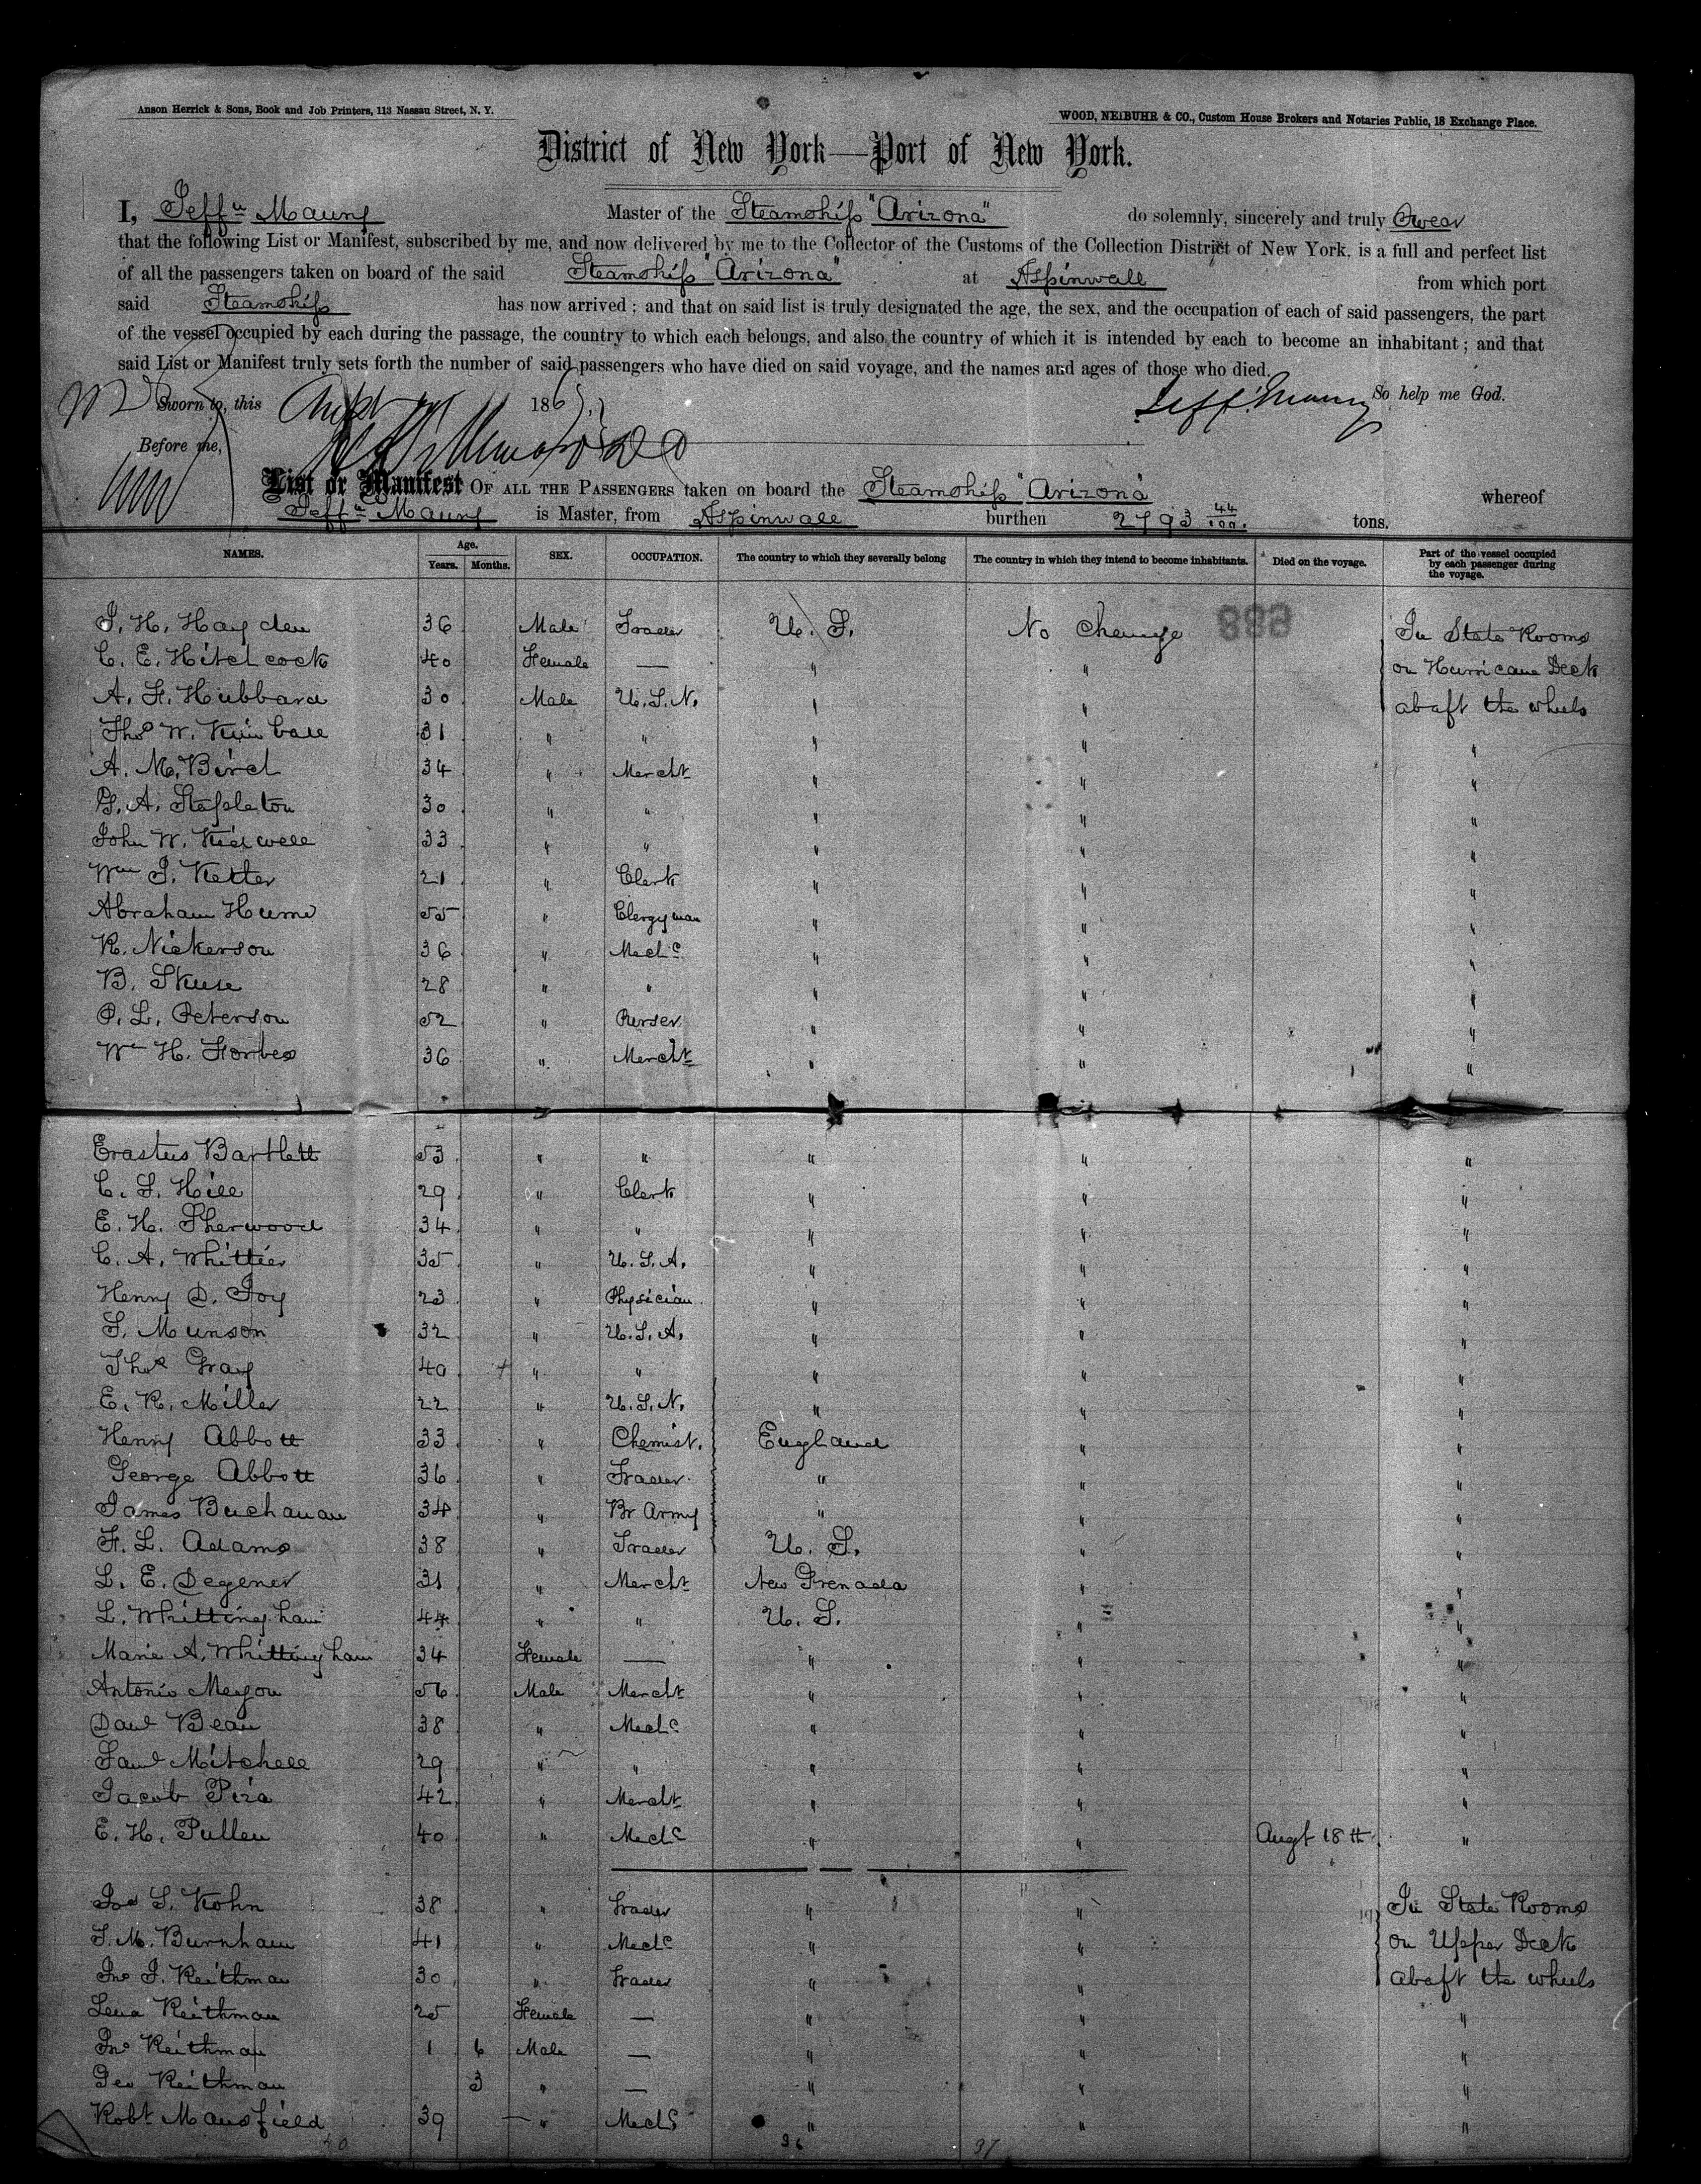 Anson Herrick & Sons, Book and Job Printers, 113 Nassau Street, N. Y.
WOOD, NEIBUHR & CO., Custom House Brokers and Notaries Public, 18 Exchange Place.
District of New York—Port of New York.
I, Jeffn Maury Master of the Steamship "Arizona" do solemnly, sincerely and truly Swear
that the following List or Manifest, subscribed by me, and now delivered by me to the Collector of the Customs of the Collection District of New York, is a full and perfect list
of all the passengers taken on board of the said Steamship "Arizona" at Aspinwall from which port
said Steamship has now arrived; and that on said list is truly designated the age, the sex, and the occupation of each of said passengers, the part
of the vessel occupied by each during the passage, the country to which each belongs, and also the country of which it is intended by each to become an inhabitant; and that
said List or Manifest truly sets forth the number of said passengers who have died on said voyage, and the names and ages of those who died.
So help me God.
Sworn to, this 186
Jeff. Maury
Before me,
List or Manifest OF ALL THE PASSENGERS taken on board the Steamship "Arizona" whereof
Jeffn Maury is Master, from Aspinwall burthen 2793 44/100 tons.
NAMES. Age. Years. Months. SEX. OCCUPATION. The country to which they severally belong The country in which they intend to become inhabitants. Died on the voyage. Part of the vessel occupied by each passenger during the voyage.
J. H. Hayden 36 Male Trader U. S. No Change In State Rooms
C. E. Hitchcock 40 Female — " " on Hurricane Deck
A. F. Hubbard 30 Male U.S.N. " " abaft the wheels
Thos W. Kimball 31 " " " " "
A. M. Birch 34 " Mercht " " "
G. A. Stapleton 30 " " " " "
John W. Kidwell 33 " " " " "
Wm J. Ketter 21 " Clerk " " "
Abraham Hume 55 " Clergyman " " "
R. Nickerson 36 " Mechc " " "
B. Skuse 28 " " " " "
P. L. Peterson 52 " Purser " " "
Wm H. Forbes 36 " Mercht " " "
Erastus Bartlett 53 " " " " "
C. S. Hill 29 " Clerk " " "
E. H. Sherwood 34 " " " " "
C. A. Whittier 35 " U.S.A. " " "
Henry D. Joy 23 " Physician " " "
S. Munson 32 " U.S.A. " " "
Thos Gray 40 " " " " "
E. R. Miller 22 " U.S.N. " " "
Henry Abbott 33 " Chemist. England " "
George Abbott 36 " Trader " " "
James Buchanan 34 " Br Army " " "
F. L. Adams 38 " Trader U. S. " "
L. E. Degener 31 " Mercht New Grenada " "
L. Whittingham 44 " " U. S. " "
Marie A. Whittingham 34 Female — " " "
Antonio 56 Male Mercht " " "
Danl Bean 38 " Mechc " " "
Saml Mitchell 29 " " " " "
Jacob Piza 42 " Mercht " " "
E. H. Pullen 40 " Mechc " " Augt 18th "
Jos S. Kohn 38 " Trader " " In State Rooms
S. M. Burnham 41 " Mechc " " on Upper Deck
Jno J. Reithman 30 " Trader " " abaft the wheels
Lena Reithman 25 Female — " " "
Jno Reithman 1 6 Male — " " "
Geo Reithman 3 " — " " "
Robt Mansfield 39 " Mechc " " "